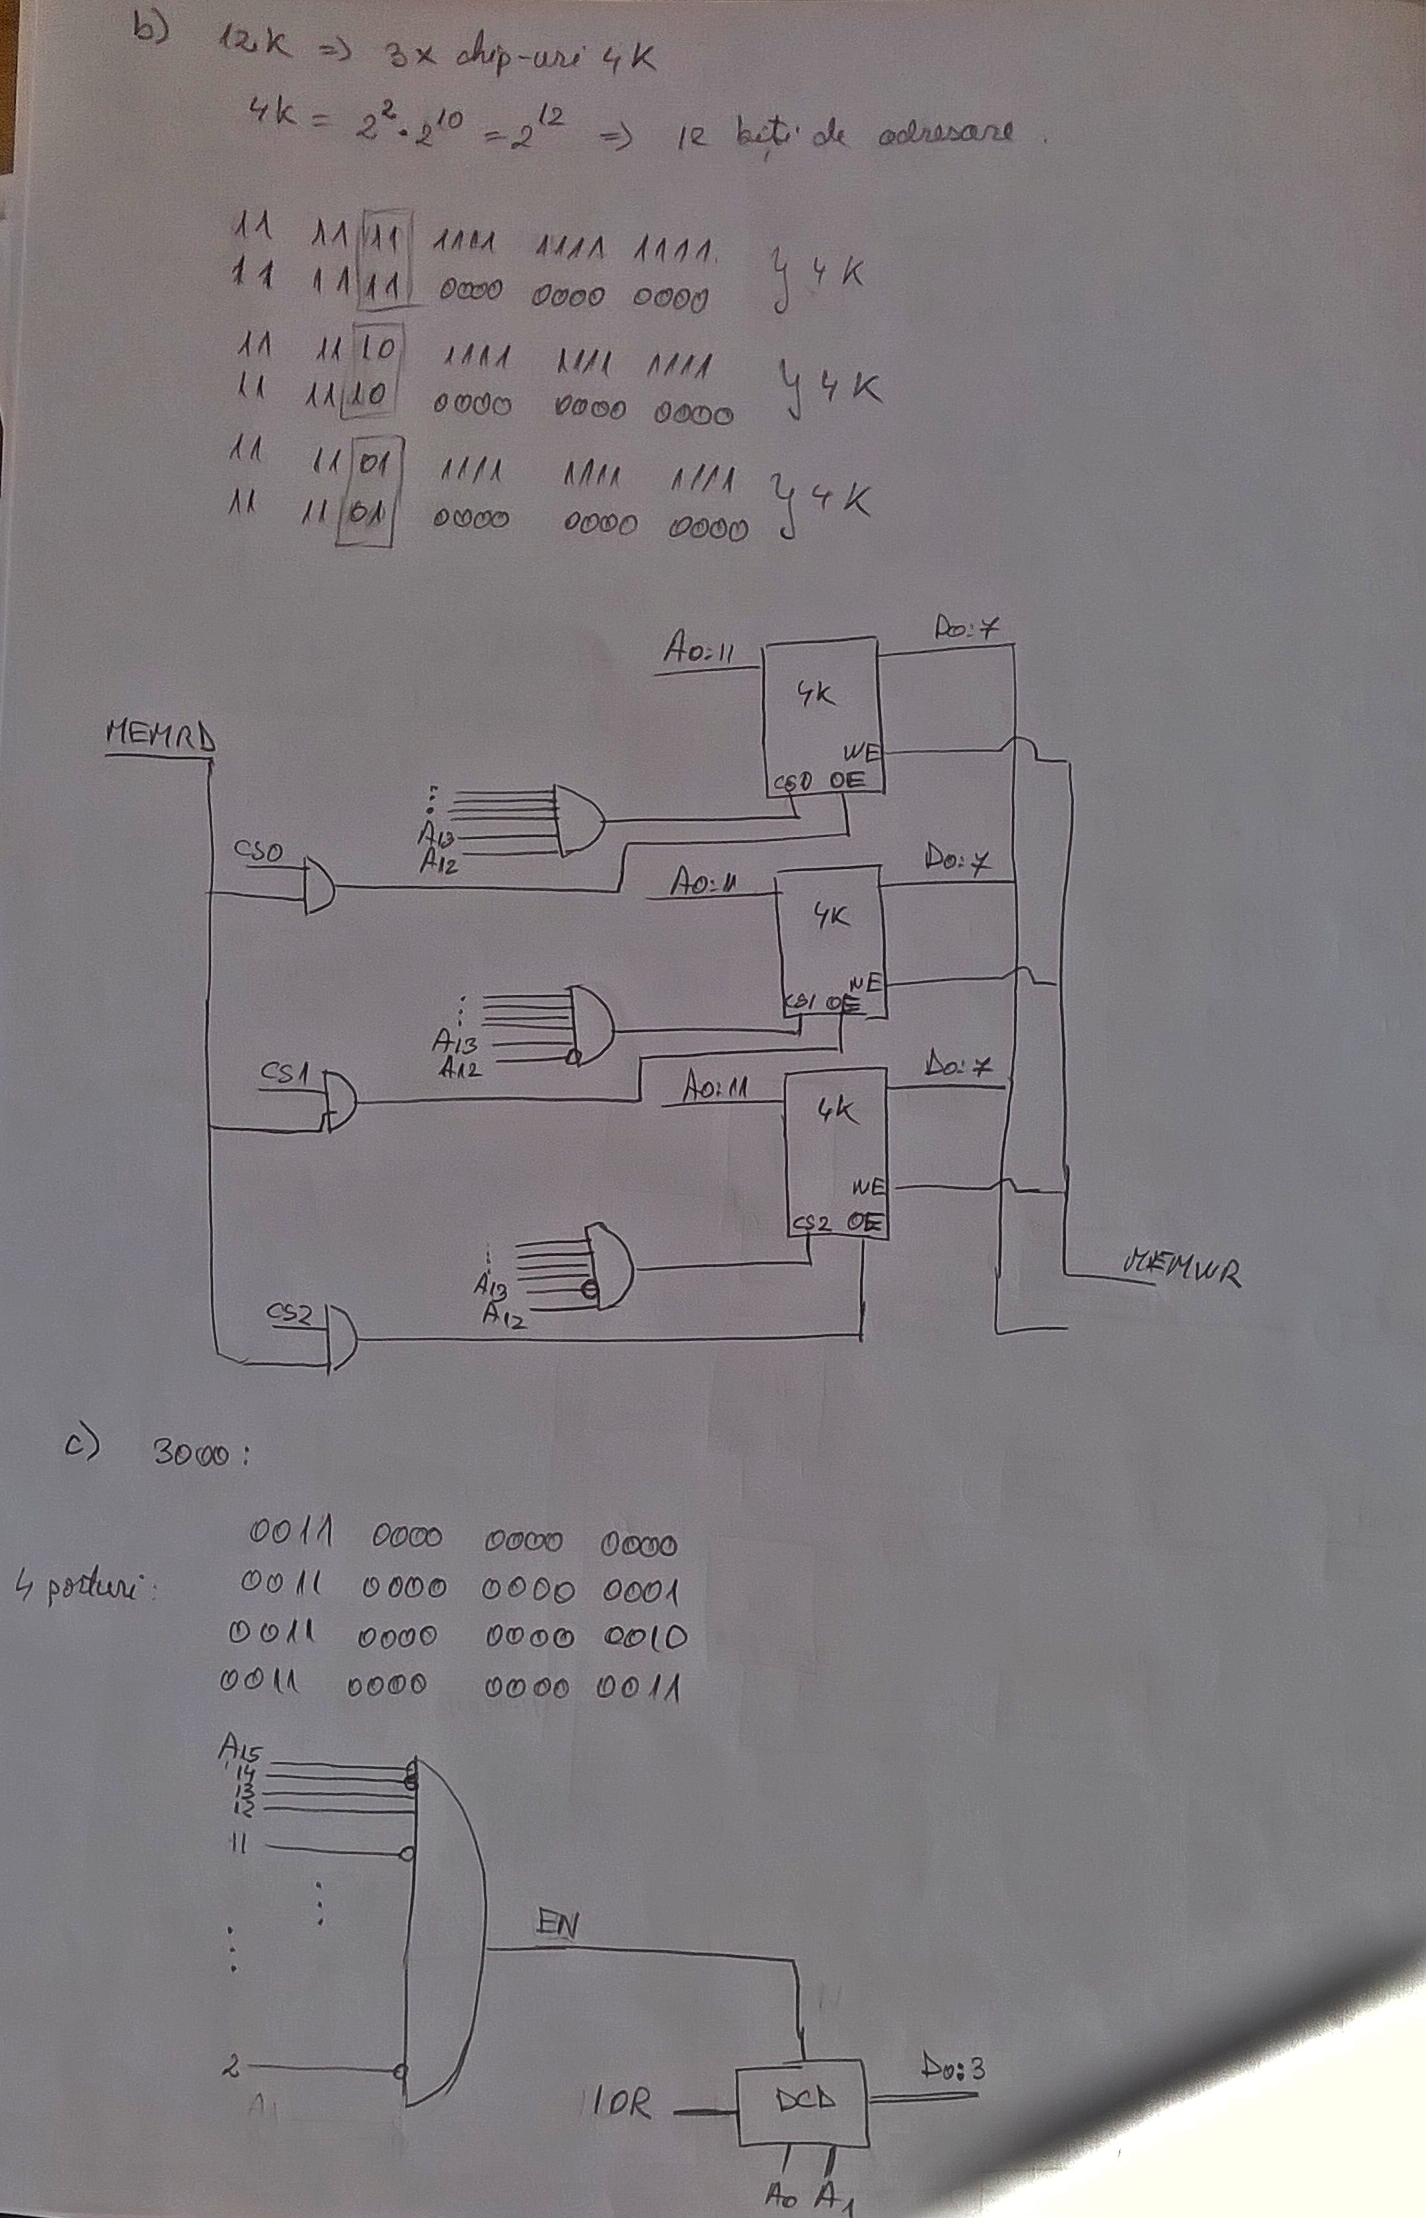 b) 12K => 3x chip-uri 4K
4K = 2² · 2¹⁰ = 2¹² => 12 biți de adresare.
11 11 11 1111 1111 1111
11 11 11 0000 0000 0000 } 4K
11 11 10 1111 1111 1111
11 11 10 0000 0000 0000 } 4K
11 11 01 1111 1111 1111
11 11 01 0000 0000 0000 } 4K
A0:11 D0:7
4K
MEMRD
WE
CS0 OE
A13
CS0
A12
A0:11 D0:7
4K
WE
CS1 OE
A13
A12
CS1
A0:11 D0:7
4K
WE
CS2 OE
MEMWR
A13
A12
CS2
c) 3000:
0011 0000 0000 0000
4 porturi: 0011 0000 0000 0001
0011 0000 0000 0010
0011 0000 0000 0011
A15
14
13
12
11
EN
2
IOR DCD D0:3
A0 A1